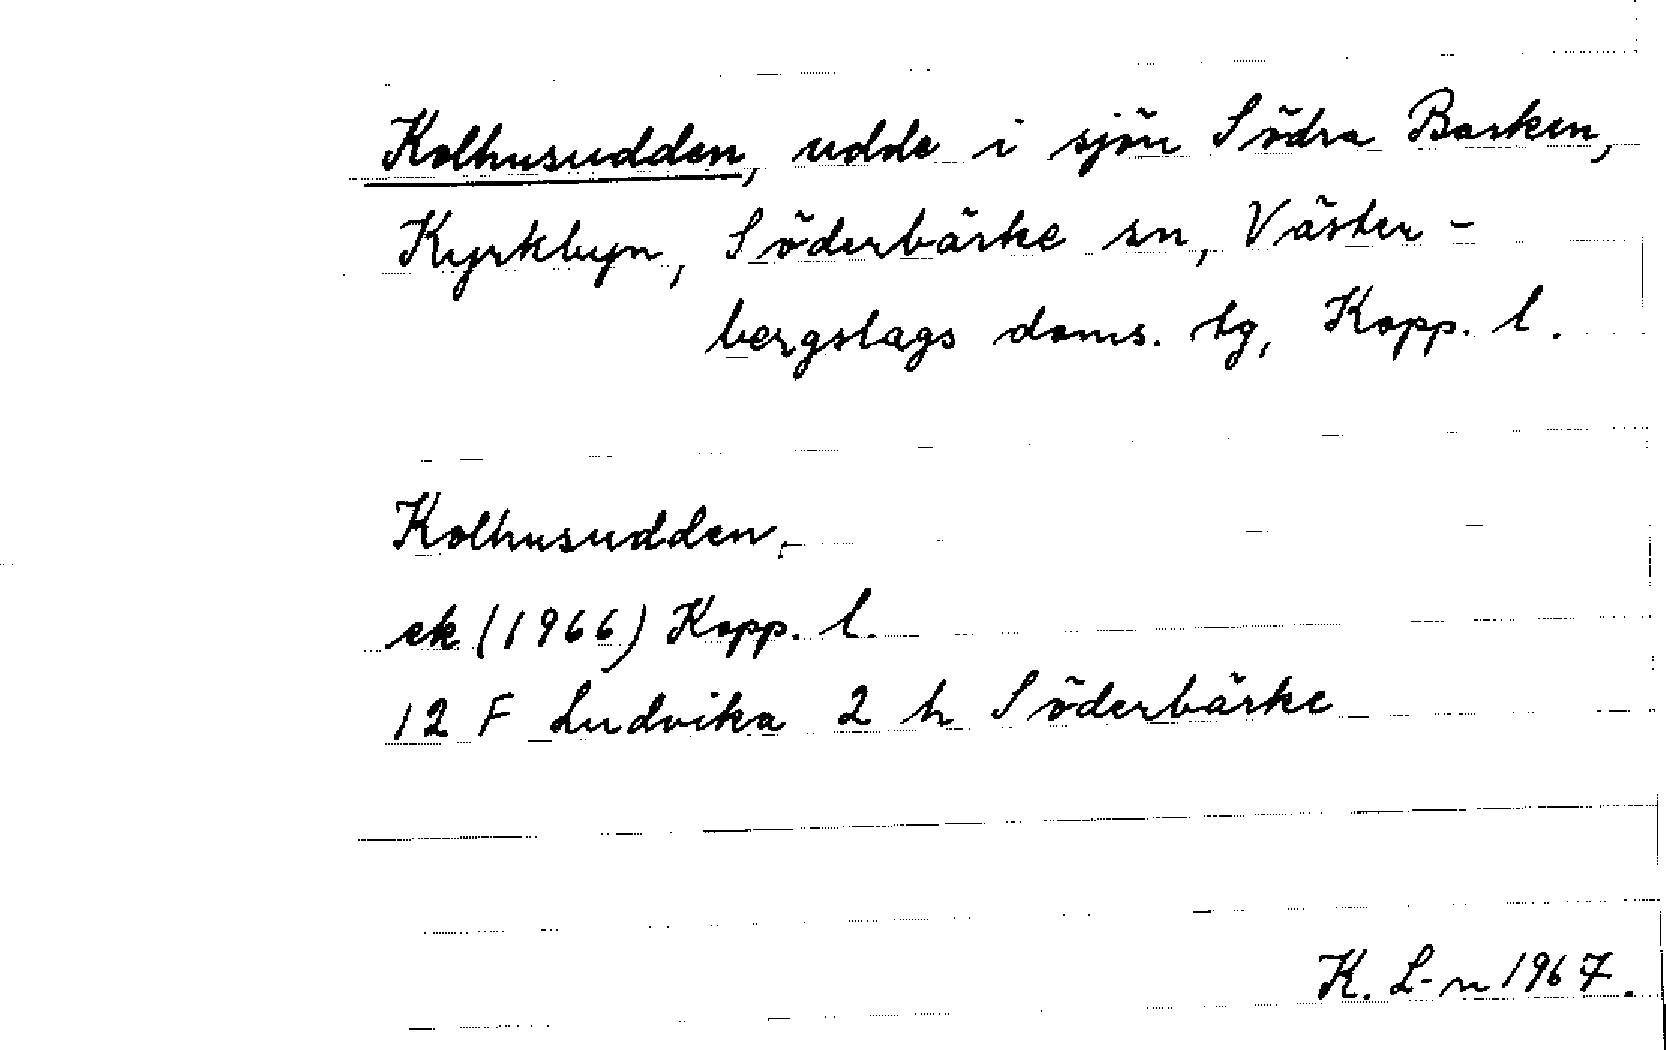 Kolhusudden, udde i sjön Södra Barken,
Kyrkbyn, Söderbärke sn, Väster-
bergslags doms. tg, Kopp. l.
Kolhusudden,
ek (1966) Kopp. l.
12 F Ludvika 2 h Söderbärke
K. L-n 1967.